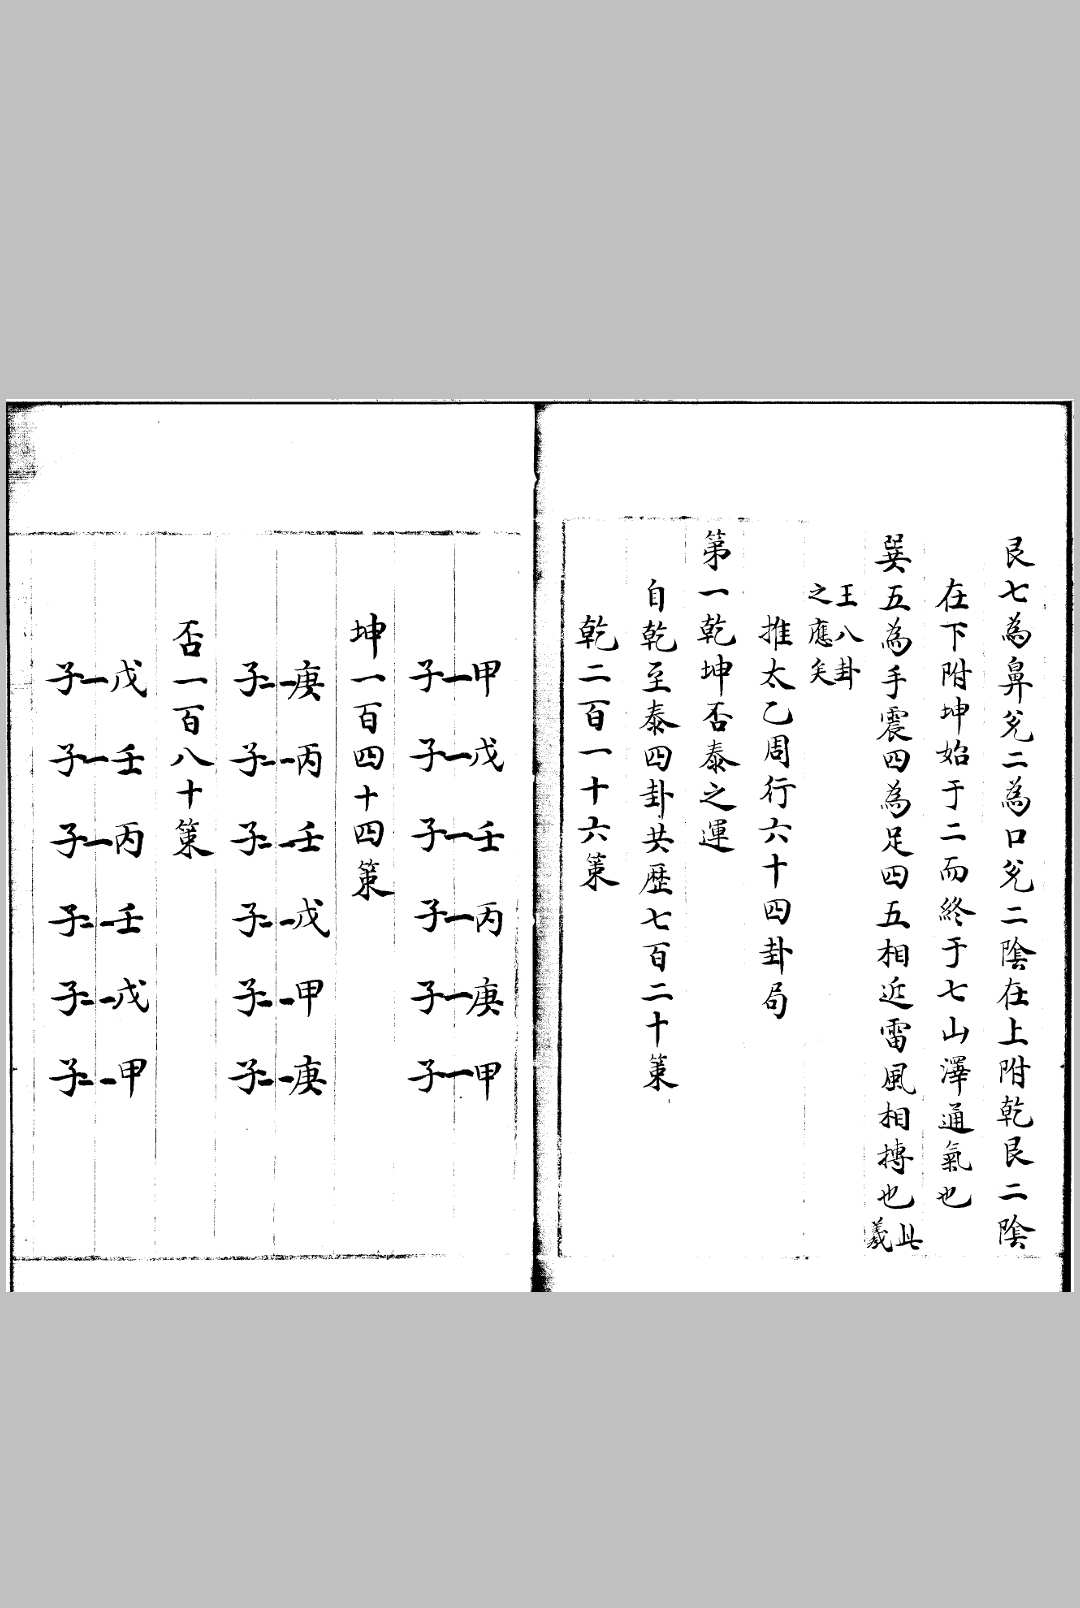 艮七為鼻兊二為口兊二陰在上附乾艮二陰
在下附坤始于二而終于七山澤通氣也
巽五為手震四為足四五相近雷風相搏也此羲
王八卦之應矣
推太乙周行六十四卦局
第一乾坤否泰之運
自乾至泰四卦共歴七百二十策
乾二百一十六策
甲戊壬丙庚甲
子子子子子子
坤一百四十四策
庚丙壬戊甲庚
子子子子子子
否一百八十策
戊壬丙壬戊甲
子子子子子子